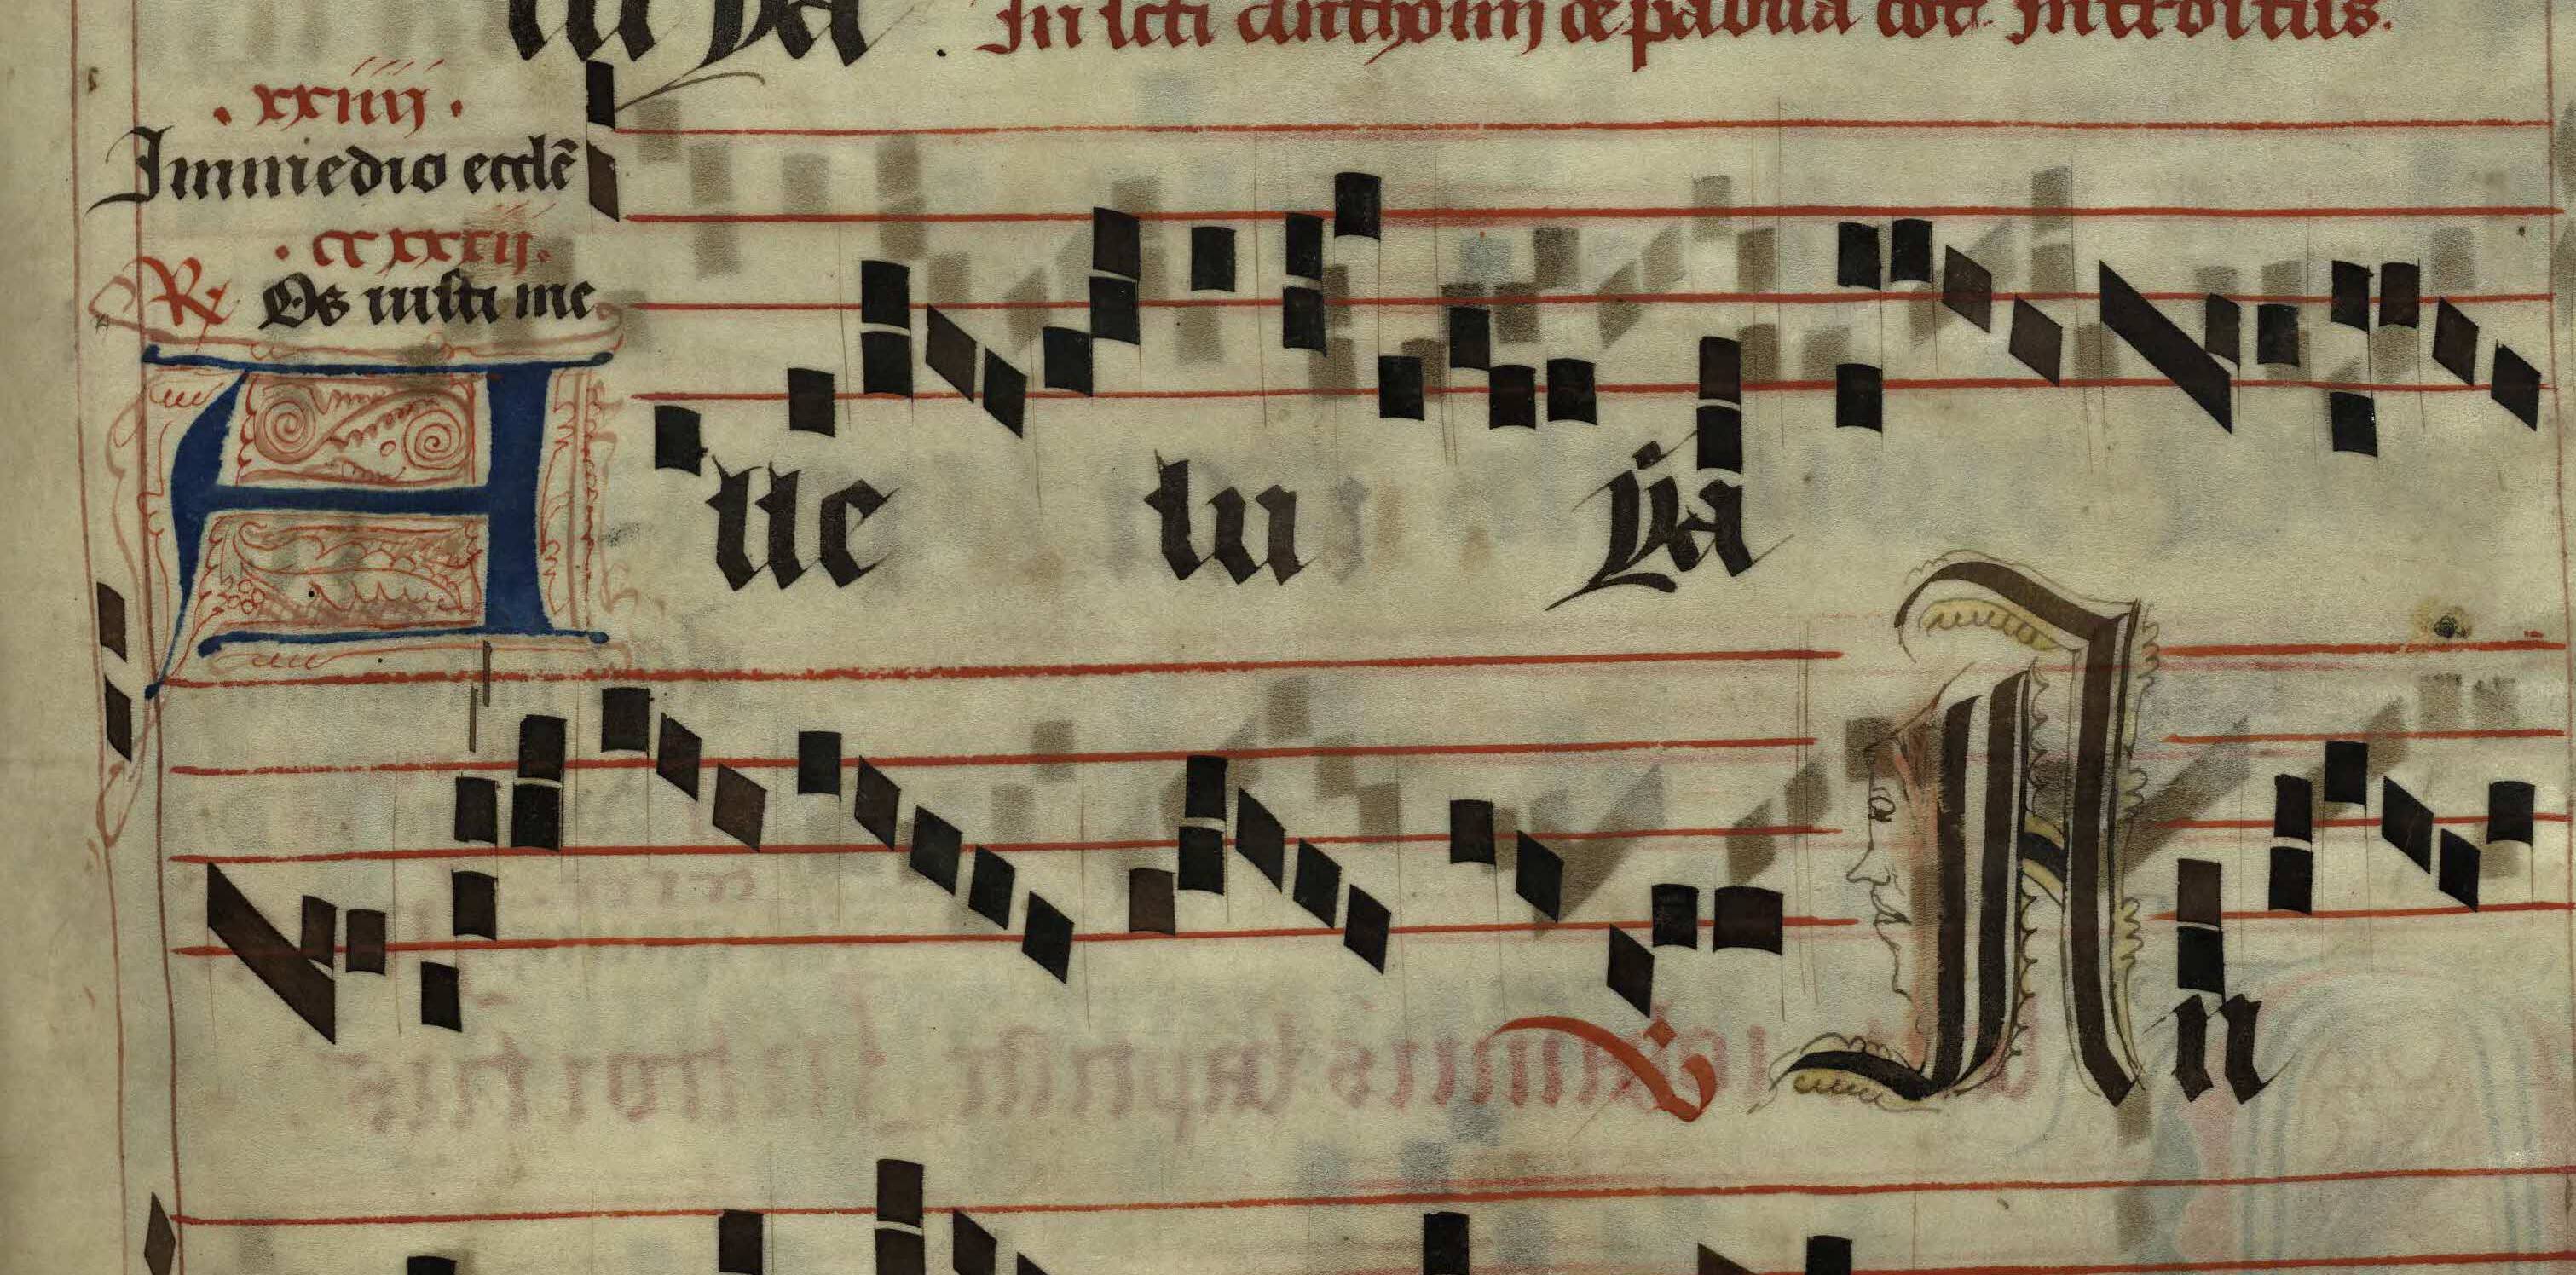 lu ya . In scti Anthonij de padua cōf. Introitus.
. xxiiij .
Immedio eccl̄e
. cxxxij .
℞ Os iusti me
A lle lu ya
V An